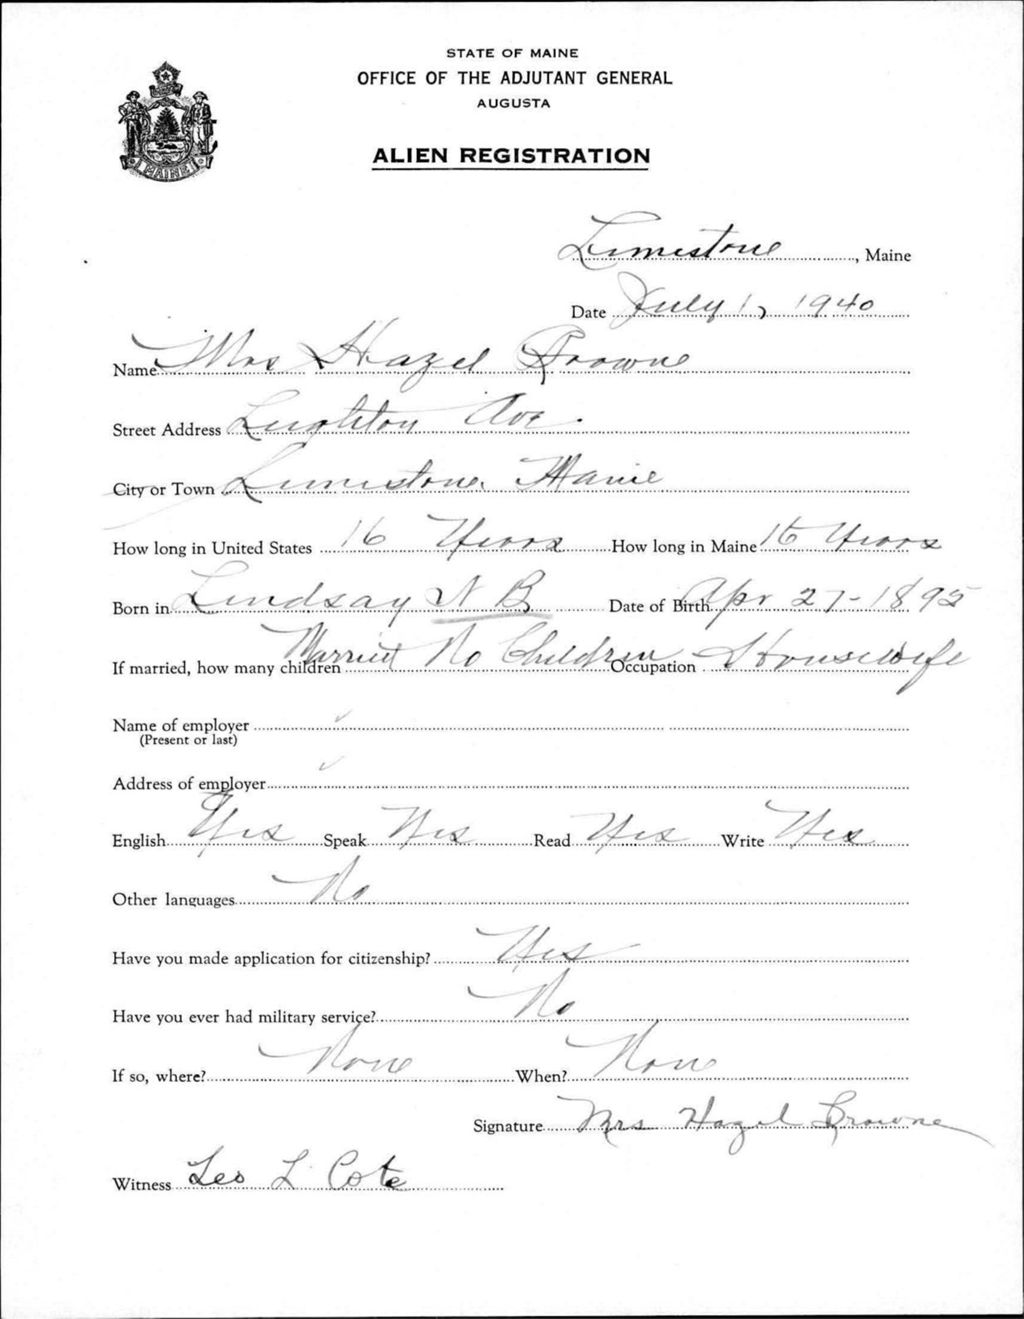 STATE OF MAINE
OFFICE OF THE ADJUTANT GENERAL
AUGUSTA
ALIEN REGISTRATION
MAINE
Limestone, Maine
Date July 1, 1940
Name Mrs Hazel Browne
Street Address Leighton Ave.
City or Town Limestone, Maine
How long in United States 16 Years How long in Maine 16 Years
Born in Lindsay N B Date of Birth Apr 27-1895
If married, how many children Married No Children Occupation Housewife
Name of employer
(Present or last)
Address of employer
English Yes Speak Yes Read Yes Write Yes
Other languages No
Have you made application for citizenship? Yes
Have you ever had military service? No
If so, where? None When? None
Signature Mrs Hazel Browne
Witness Leo L Cote